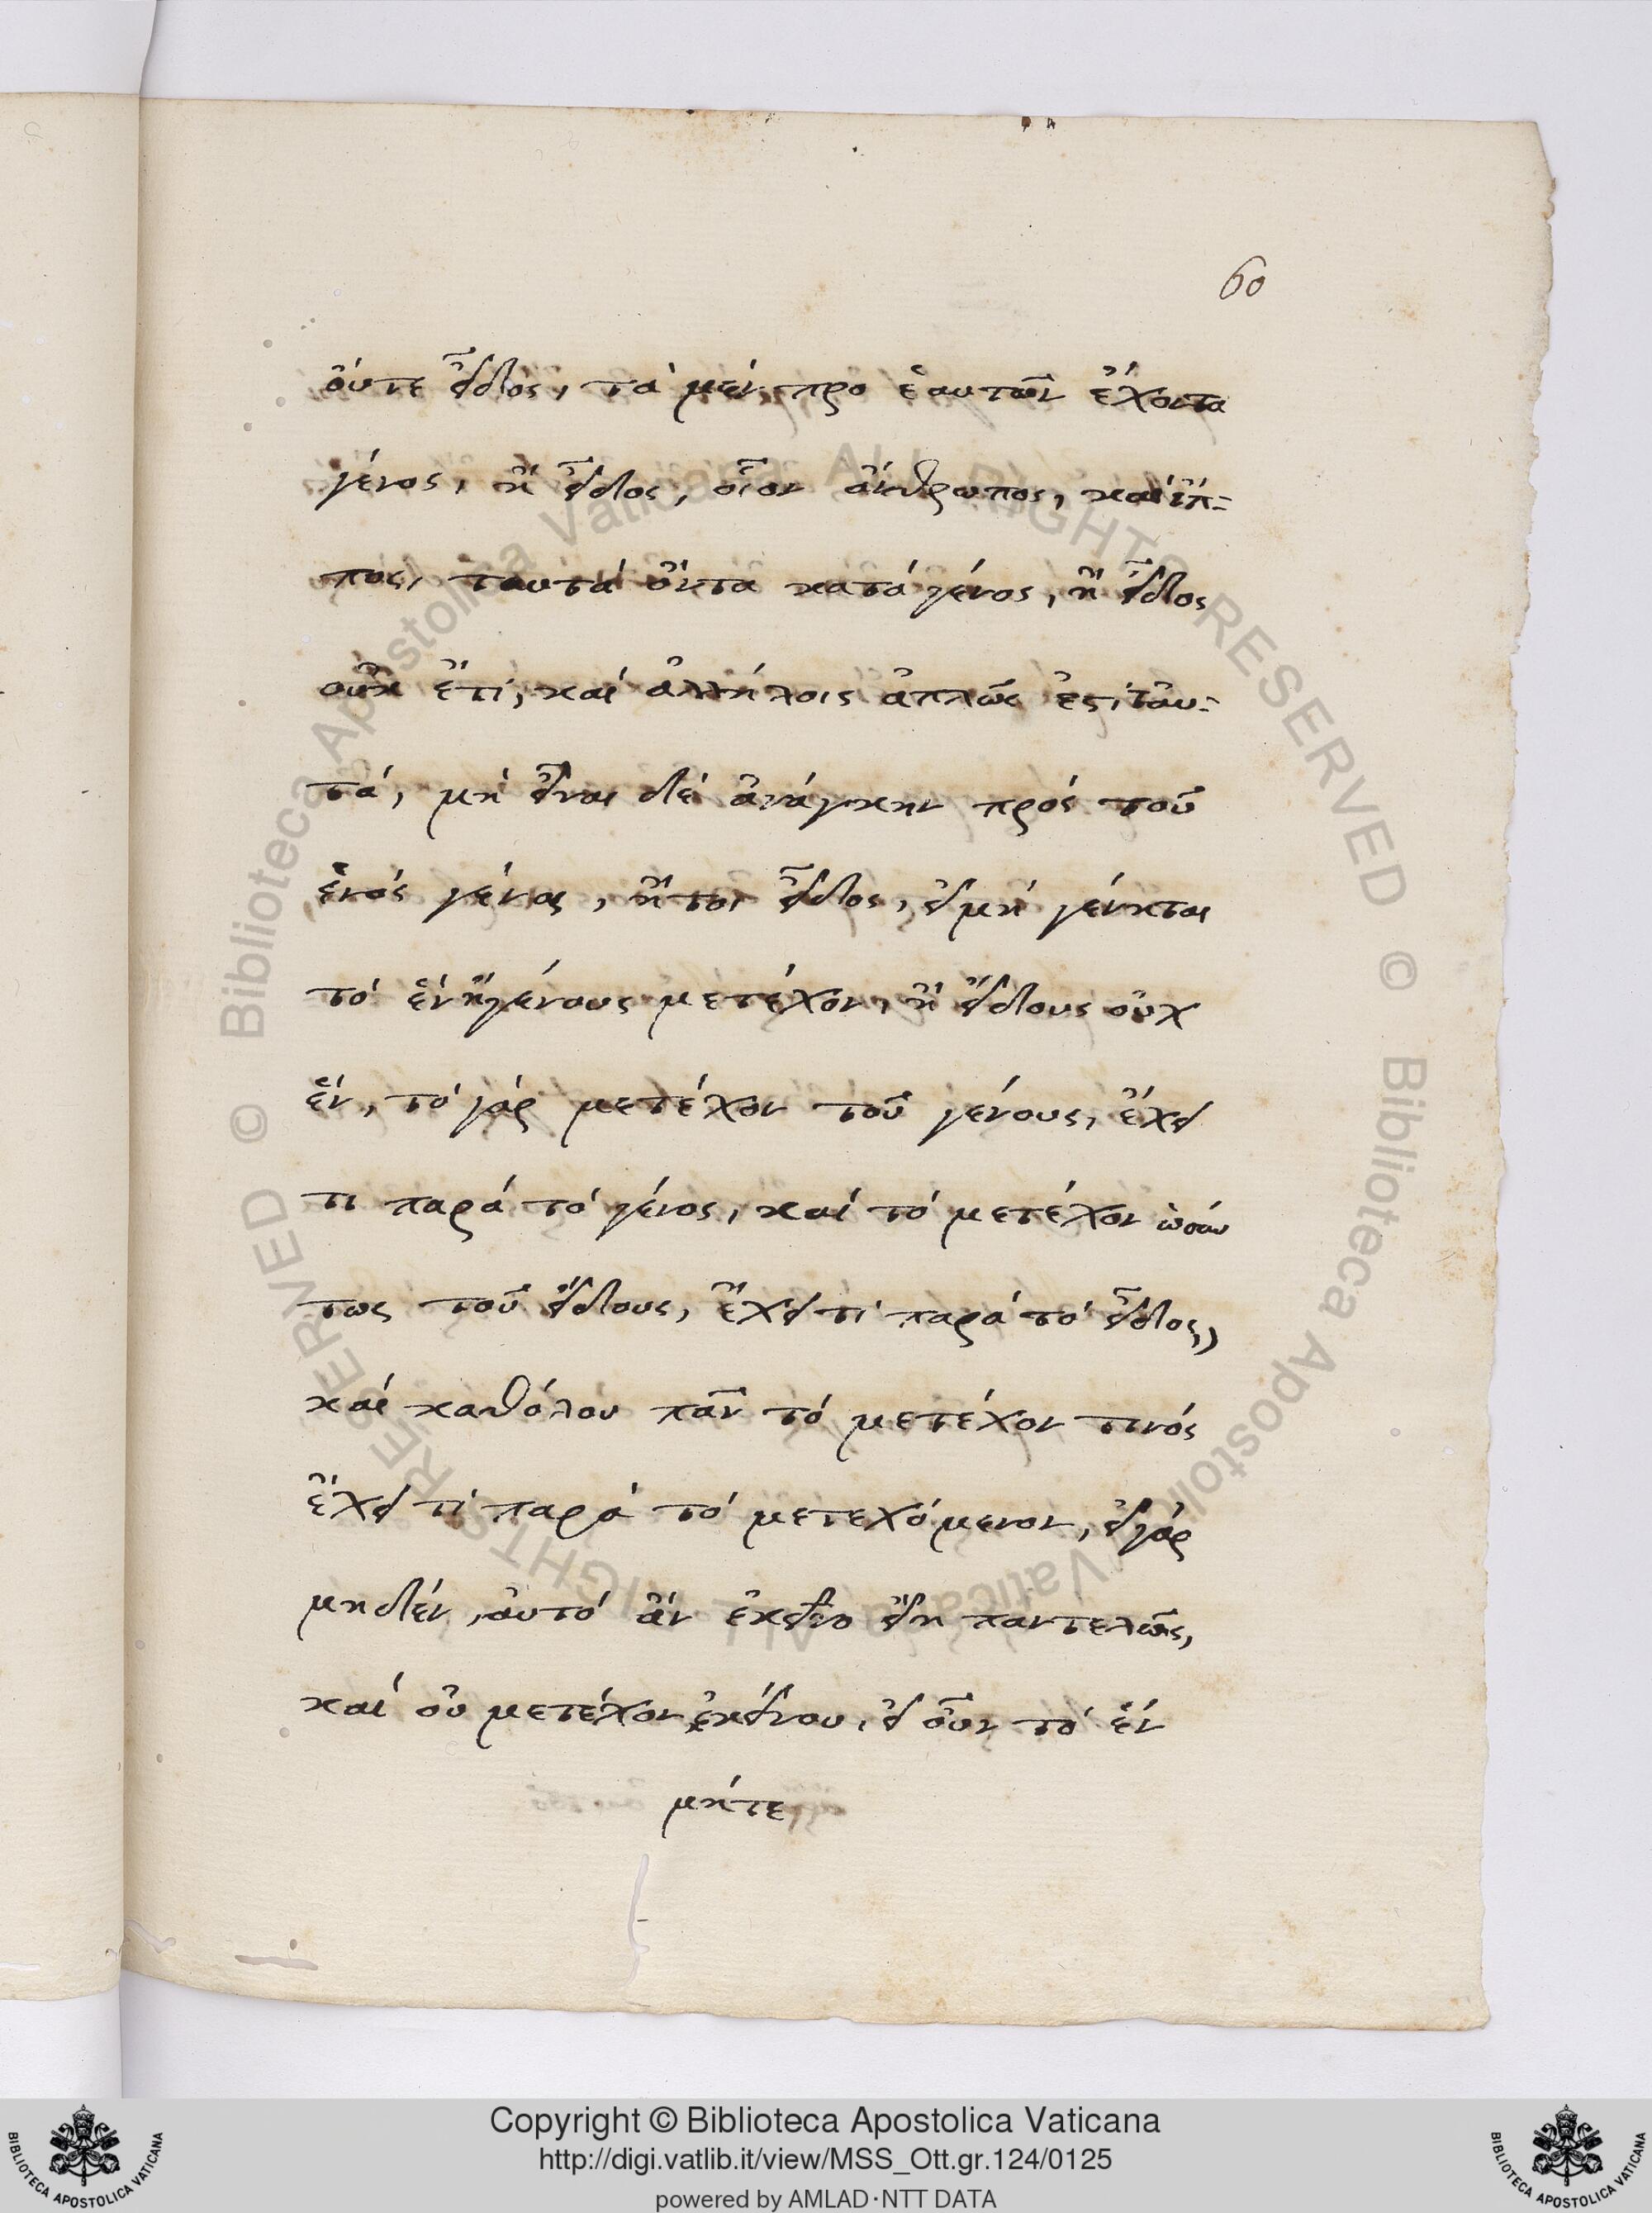 60
ὄυτε εἶδος, τὰ μὲν προ ἑαυτῶν ἔχοντα
γένος, ἢ εἶδος, οἷον ἄνθρωπος, καὶ ἵπ-
πος, ταυτά ὄντα κατά γένος, ἢ εἶδος
οὐκ ἔτι, καὶ ἀλλήλοις ἁπλῶς ἐστί ταυ-
τά, μὴ εἶναι δέ ἀνάγκην πρός τοῦ
ἑνός γένος, ἤτοι εἶδος, εἰ μή γένηται
τό ἕν ἢ γένους μετέχον, ἢ εἴδους οὐχ
ἕν, τό γάρ μετέχον τοῦ γένους, ἔχει
τι παρά τό γένος, καὶ τό μετέχον ὡσάυ
τως τοῦ εἴδους, ἔχει τί παρά τό εἶδος,
καί καθόλου πᾶν τό μετέχον τινός
ἔχει τί παρά τό μετεχόμενον, εἰ γάρ
μηδέν, ἀυτό ἄν ἐκεῖνο εἴη παντελῶς,
καί οὐ μετέχον ἐκείνου, εἰ οὖν τό ἕν
μήτε
Copyright © Biblioteca Apostolica Vaticana
http://digi.vatlib.it/view/MSS_Ott.gr.124/0125
powered by AMLAD·NTT DATA
BIBLIOTECA APOSTOLICA VATICANA
BIBLIOTECA APOSTOLICA VATICANA
© Biblioteca Apostolica Vaticana ALL RIGHTS RESERVED
© Biblioteca Apostolica Vaticana ALL RIGHTS RESERVED